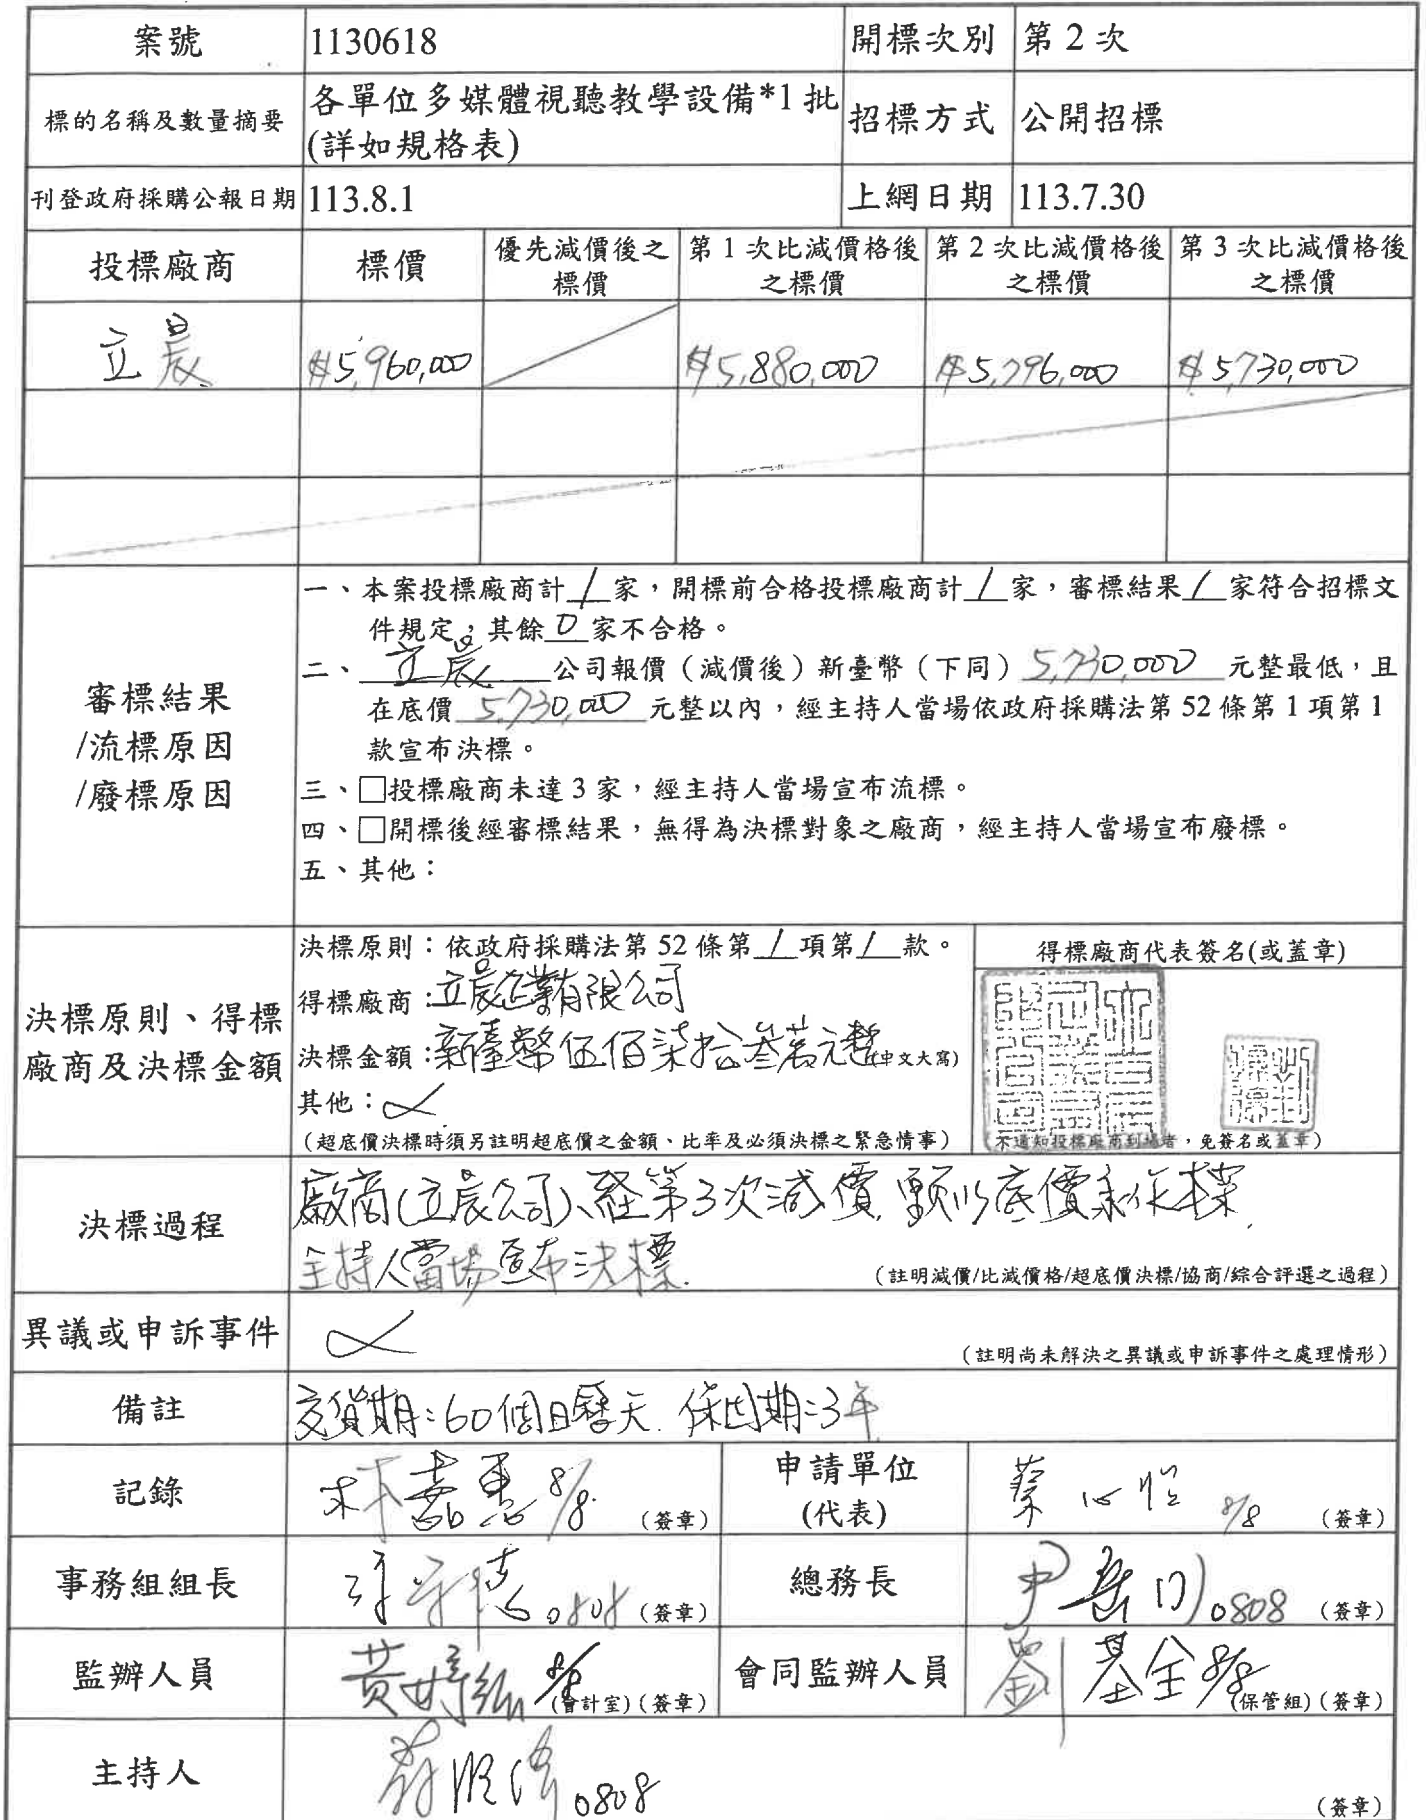 案號 1130618 開標次別 第2次
標的名稱及數量摘要 各單位多媒體視聽教學設備*1批 招標方式 公開招標
(詳如規格表)
刊登政府採購公報日期 113.8.1 上網日期 113.7.30
投標廠商 標價 優先減價後之 第1次比減價格後 第2次比減價格後 第3次比減價格後
標價 之標價 之標價 之標價
立晨 $5,960,000 $5,880,000 $5,796,000 $5,730,000
審標結果
/流標原因
/廢標原因
一、本案投標廠商計1家，開標前合格投標廠商計1家，審標結果1家符合招標文
件規定，其餘0家不合格。
二、立晨公司報價（減價後）新臺幣（下同）5,730,000元整最低，且
在底價5,730,000元整以內，經主持人當場依政府採購法第52條第1項第1
款宣布決標。
三、□投標廠商未達3家，經主持人當場宣布流標。
四、□開標後經審標結果，無得為決標對象之廠商，經主持人當場宣布廢標。
五、其他：
決標原則、得標
廠商及決標金額
決標原則：依政府採購法第52條第1項第1款。
得標廠商：立晨企業有限公司
決標金額：新臺幣伍佰柒拾叁萬元整(中文大寫)
其他：
（超底價決標時須另註明超底價之金額、比率及必須決標之緊急情事）
得標廠商代表簽名(或蓋章)
（不通知投標廠商到場者，免簽名或蓋章）
決標過程 廠商(立晨公司)、經第3次減價,願以底價承作本案,
主持人當場宣布決標.
（註明減價/比減價格/超底價決標/協商/綜合評選之過程）
異議或申訴事件 （註明尚未解決之異議或申訴事件之處理情形）
備註 交貨期:60個日曆天. 保固期:3年
記錄 林嘉惠 8/8 （簽章） 申請單位 蔡心怡 8/8 （簽章）
(代表)
事務組組長 0808 （簽章） 總務長 尹 0808 （簽章）
監辦人員 黃婷 8/8 (會計室)（簽章） 會同監辦人員 劉基全 8/8 (保管組)（簽章）
主持人 0808 （簽章）